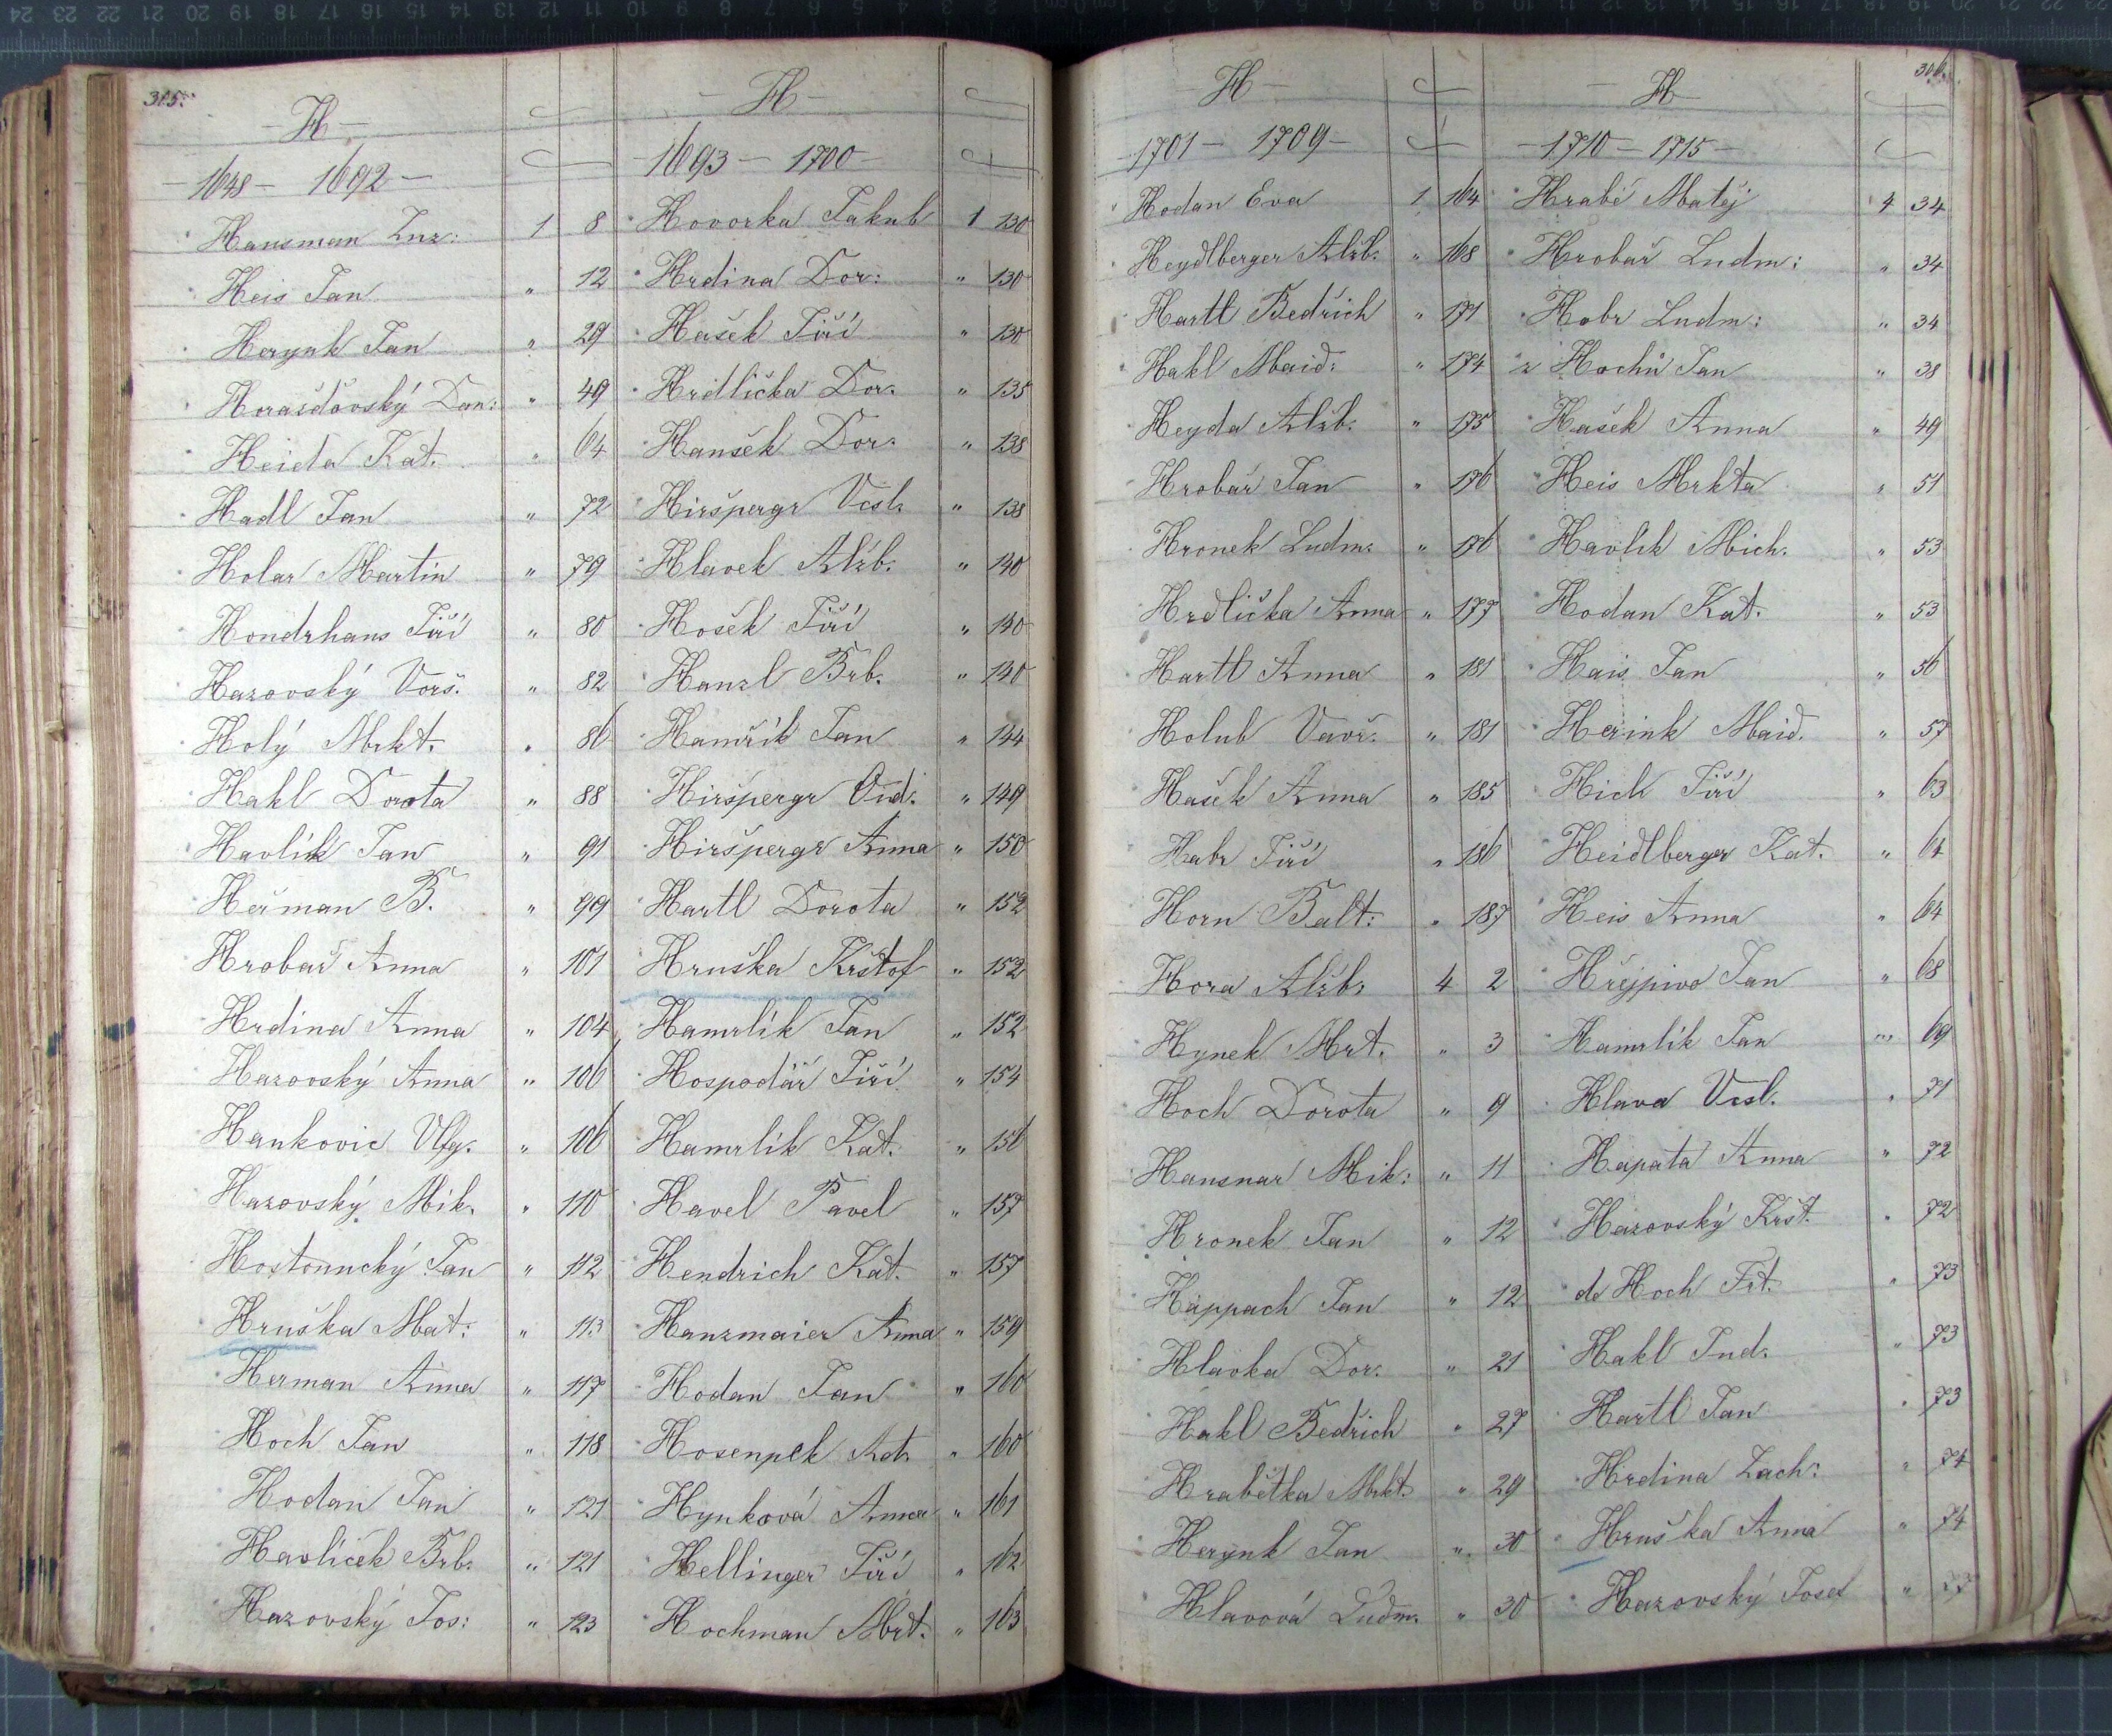 305.
— H —
— 1648 — 1692 —
Hansman Zuz: 1 8
Heis Jan " 12
Herynk Jan " 29
Horažďovský Dan: " 49
Heida Kat. " 64
Hadl Jan " 72
Holar Martin " 79
Hondrhans Jiří " 80
Hazovský Vorš. " 82
Holý Mrkt. " 86
Hakl Dorota " 88
Havlík Jan " 91
Heřman B. " 99
Hrobař Anna " 101
Hrdina Anna " 104
Hazovský Anna " 106
Hankovic Vlfg. " 106
Hazovský Mik. " 110
Hostouncký Jan " 112
Hruška Mat: " 113
Herman Anna " 117
Hoch Jan " 118
Hodan Jan " 121
Havlíček Brb. " 121
Hazovský Jos: " 123
— H —
— 1693 — 1700 —
Hovorka Jakub 1 130
Hrdina Dor: " 130
Hašek Jiří " 130
Hrdlička Dor. " 135
Hansek Dor. " 138
Hiršpergr Vcsl. " 138
Hlavek Alžb. " 140
Hošek Jiří " 140
Hanzl Brb. " 140
Hamřík Jan " 144
Hiršpergr " 149
Hiršpergr Anna " 150
Hartl Dorota " 152
Hruška Krštof " 152
Hamrlík Jan " 152
Hospodář Jiří " 154
Hamrlík Kat. " 156
Havel Pavel " 157
Hendrich Kat. " 157
Hanzmaier Anna " 159
Hodan Jan " 160
Hosenpek " 160
Hynková Anna " 161
Hellinger Jiří " 162
Hochman Mrt. " 163
306.
— H —
— 1701 — 1709 —
Hodan Eva 1 164
Heydlberger Alžb. " 168
Hartl Bedřich " 171
Hakl Maid: " 174
Heyda Alžb. " 175
Hrobař Jan " 176
Hronek Ludm. " 176
Hrdlička Anna " 177
Hartl Anna " 181
Holub Vavř. " 181
Hašek Anna " 185
Habr Jiří " 186
Horn Balt: " 187
Hora Alžb. 4 2
Hynek Mrt. " 3
Hoch Dorota " 9
Hansnar Mik: " 11
Hronek Jan " 12
Happach Jan " 12
Hlavka Dor. " 21
Hakl Bedřich " 27
Hrabětka Mrkt. " 29
Herynk Jan " 30
Hlavová Ludm. " 30
— H —
— 1710 — 1715 —
Hrabě Matěj 4 34
Hrobař Ludm: " 34
Hobr Ludm: " 34
z Hochů Jan " 38
Hašek Anna " 49
Heis Mrkta " 51
Havlík Mich. " 53
Hodan Kat. " 53
Hais Jan " 56
Herink Maid. " 57
Hich Jiří " 63
Heidlberger Kat. " 64
Heis Anna " 64
Hřejpivo Jan " 68
Hamrlík Jan " 69
Hlava Vcsl. " 71
Hapata Anna " 72
Hazovský Kršt. " 72
de Hoch Frt. " 73
Hakl Jud. " 73
Hartl Jan " 73
Hrdina Zach: " 74
Hruška Anna " 74
Hazovský Josef "